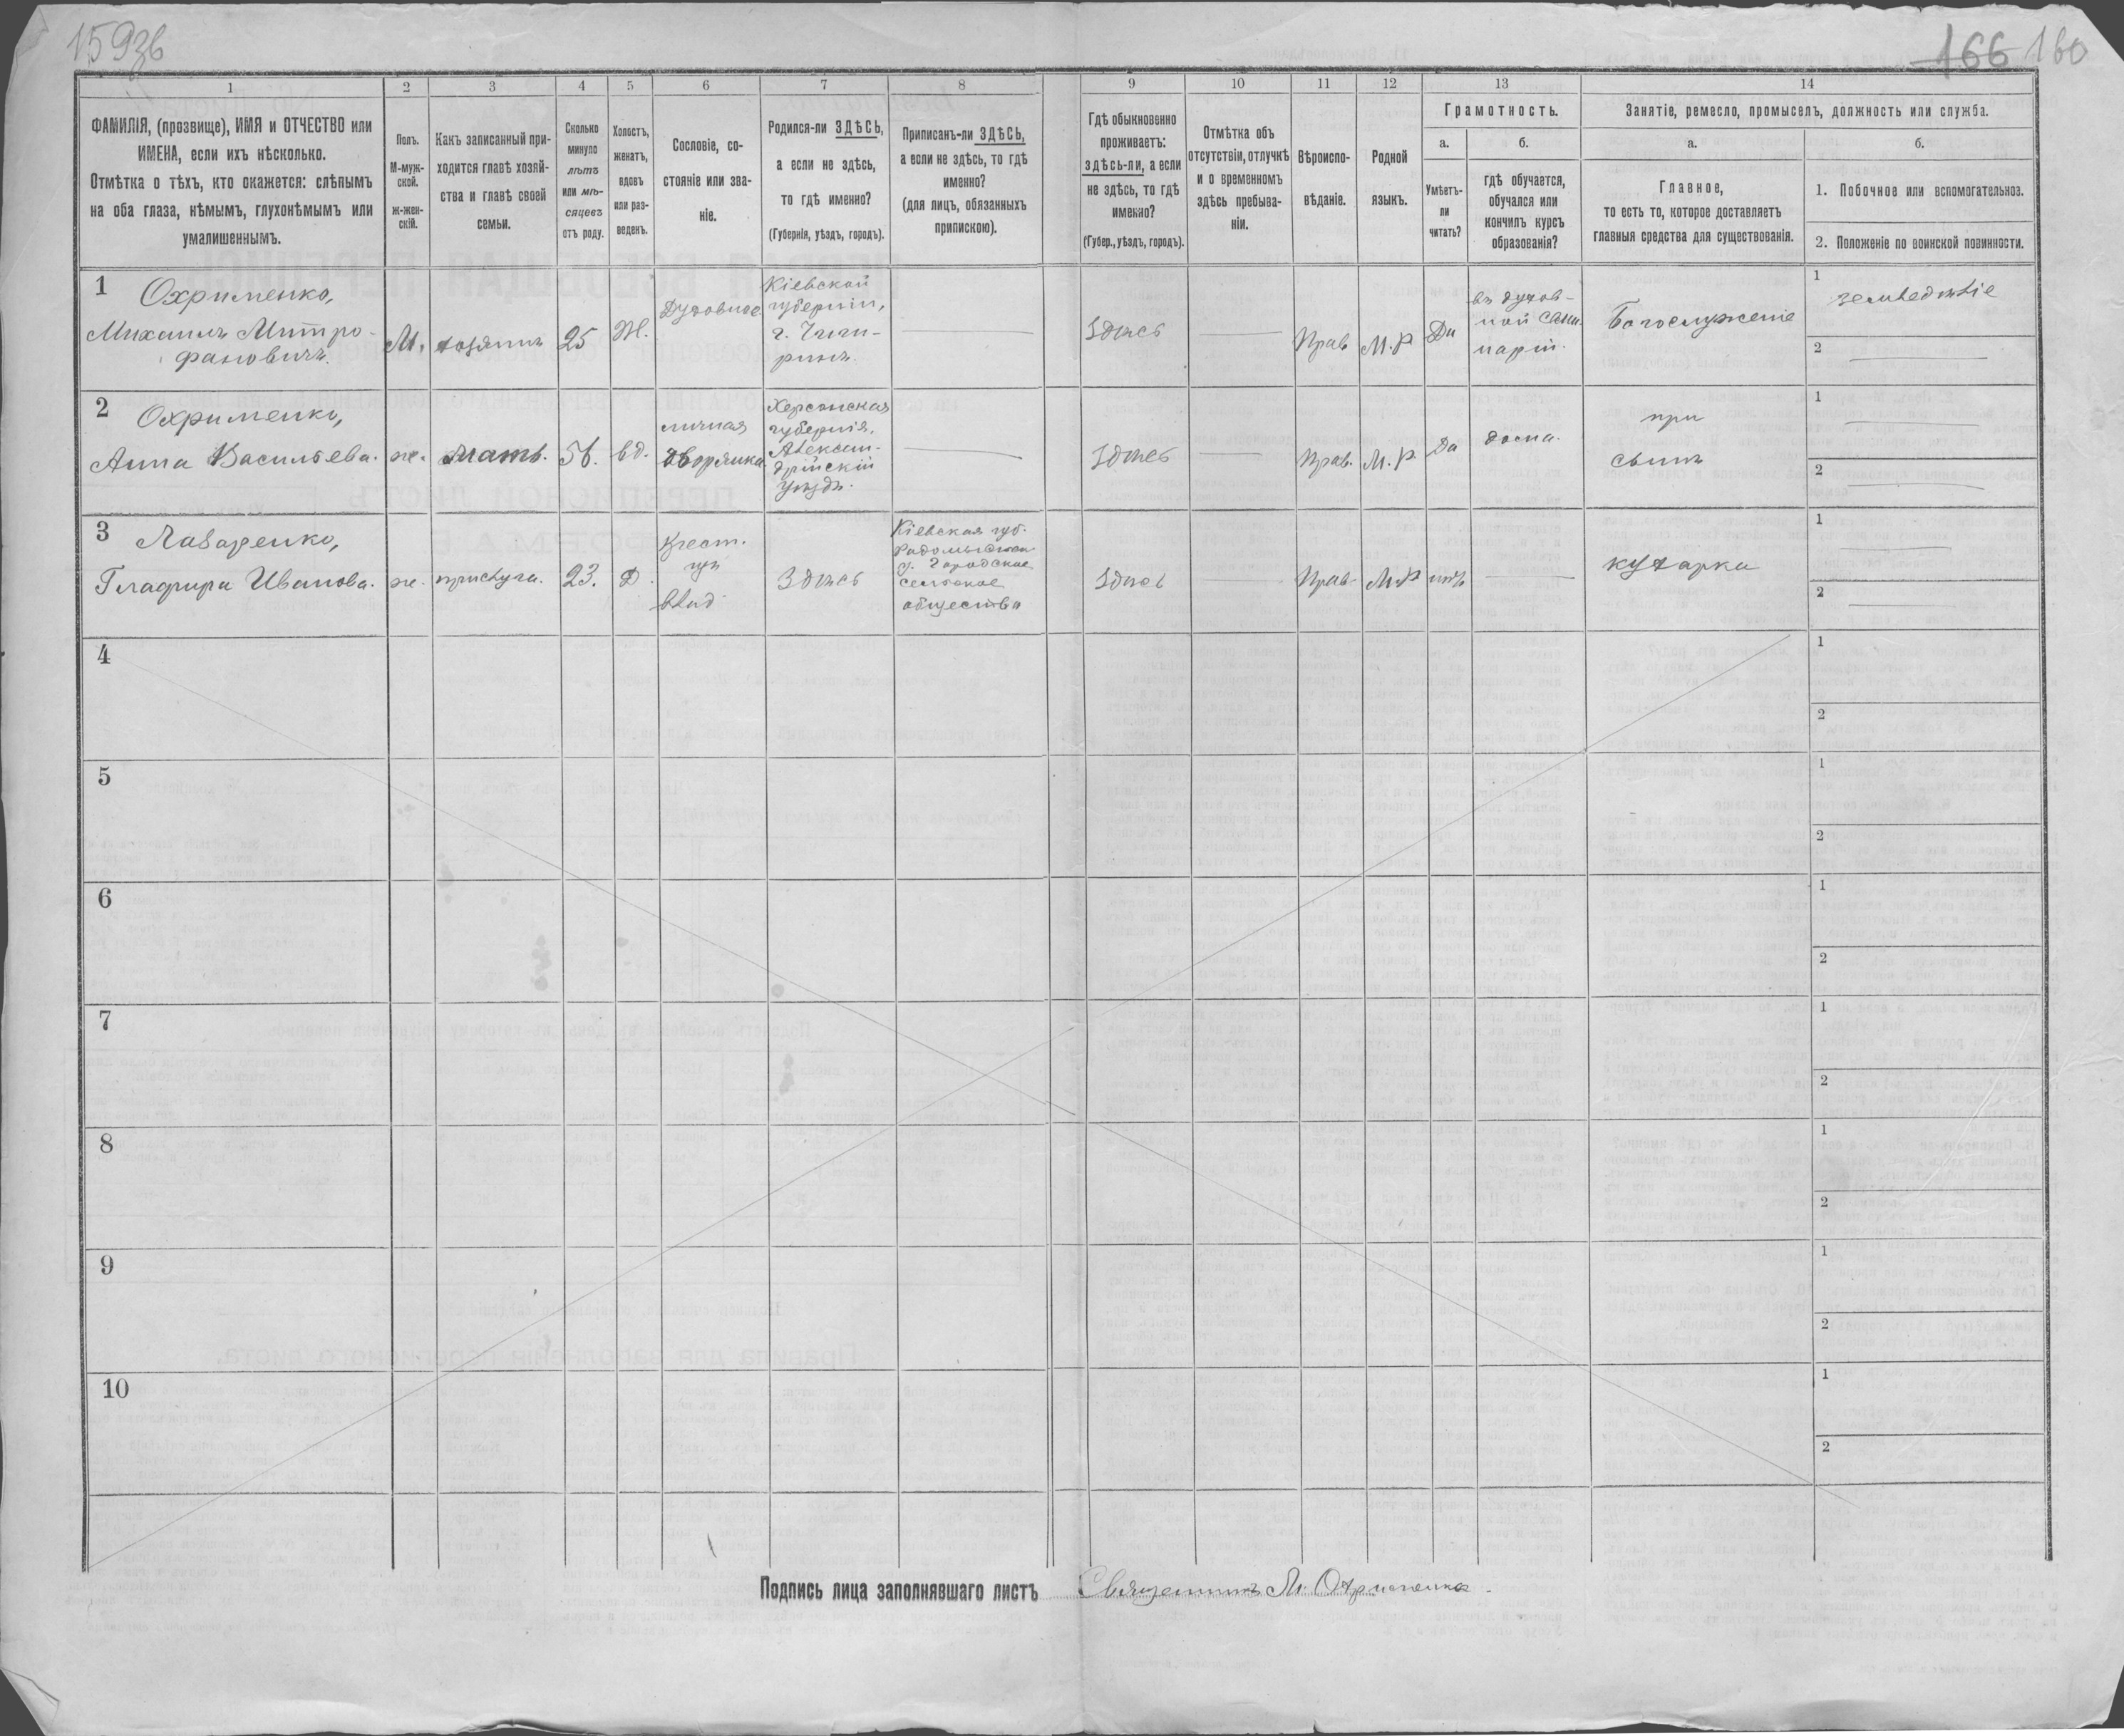 159зв
166 160
1
2
3
4
5
6
7
8
9
10
11
12
13
14
ФАМИЛІЯ, (прозвище), ИМЯ и ОТЧЕСТВО или
ИМЕНА, если ихъ нѣсколько.
Отмѣтка о тѣхъ, кто окажется: слѣпымъ
на оба глаза, нѣмымъ, глухонѣмымъ или
умалишеннымъ.
Полъ.
М-муж-
ской.
ж-жен-
скій.
Какъ записанный при-
ходится главѣ хозяй-
ства и главѣ своей
семьи.
Сколько
минуло
лѣтъ
или мѣ-
сяцевъ
отъ роду.
Холостъ,
женатъ,
вдовъ
или раз-
веденъ.
Сословіе, со-
стояніе или зва-
ніе.
Родился-ли ЗДѢСЬ,
а если не здѣсь,
то гдѣ именно?
(Губернія, уѣздъ, городъ).
Приписанъ-ли ЗДѢСЬ,
а если не здѣсь, то гдѣ
именно?
(для лицъ, обязанныхъ
припискою).
Гдѣ обыкновенно
проживаетъ:
здѣсь-ли, а если
не здѣсь, то гдѣ
именно?
(Губер., уѣздъ, городъ).
Отмѣтка объ
отсутствіи, отлучкѣ
и о временномъ
здѣсь пребыва-
ніи.
Вѣроиспо-
вѣданіе.
Родной
языкъ.
Грамотность.
а.
Умѣетъ-
ли
читать?
б.
гдѣ обучается,
обучался или
кончилъ курсъ
образованія?
Занятіе, ремесло, промыселъ, должность или служба.
а.
Главное,
то есть то, которое доставляетъ
главныя средства для существованія.
б.
1. Побочное или вспомогательное.
2. Положеніе по воинской повинности.
1 Охрименко,
Михаилъ Митро-
фановичъ.
М.
хозяинъ
25
Ж.
Духовное
Кіевской
губерніи,
г. Чиги-
ринъ.
Здѣсь
Прав
М.Р
Да
въ духов-
ной семи
наріи.
Богослуженіе
1 земледѣліе
2
2 Охрименко,
Анна Васильева.
же.
мать.
56.
вд.
личная
дворянка
Херсонская
губернія,
Алексан-
дрійскій
уѣздъ.
Здѣсь
Прав.
М.Р.
Да
дома.
при
сынѣ
1
2
3 Лазаренко,
Глафира Иванова.
же.
прислуга.
23.
Д.
Крест.
изъ
влад
Здѣсь
Кіевская губ.
с. Городское
сельское
общество
Здѣсь
Прав.
М.Р
нѣтъ
кухарка
1
2
4
1
2
5
1
2
6
1
2
7
1
2
8
1
2
9
1
2
10
1
2
Подпись лица заполнявшаго листъ Священникъ М. Охрименко